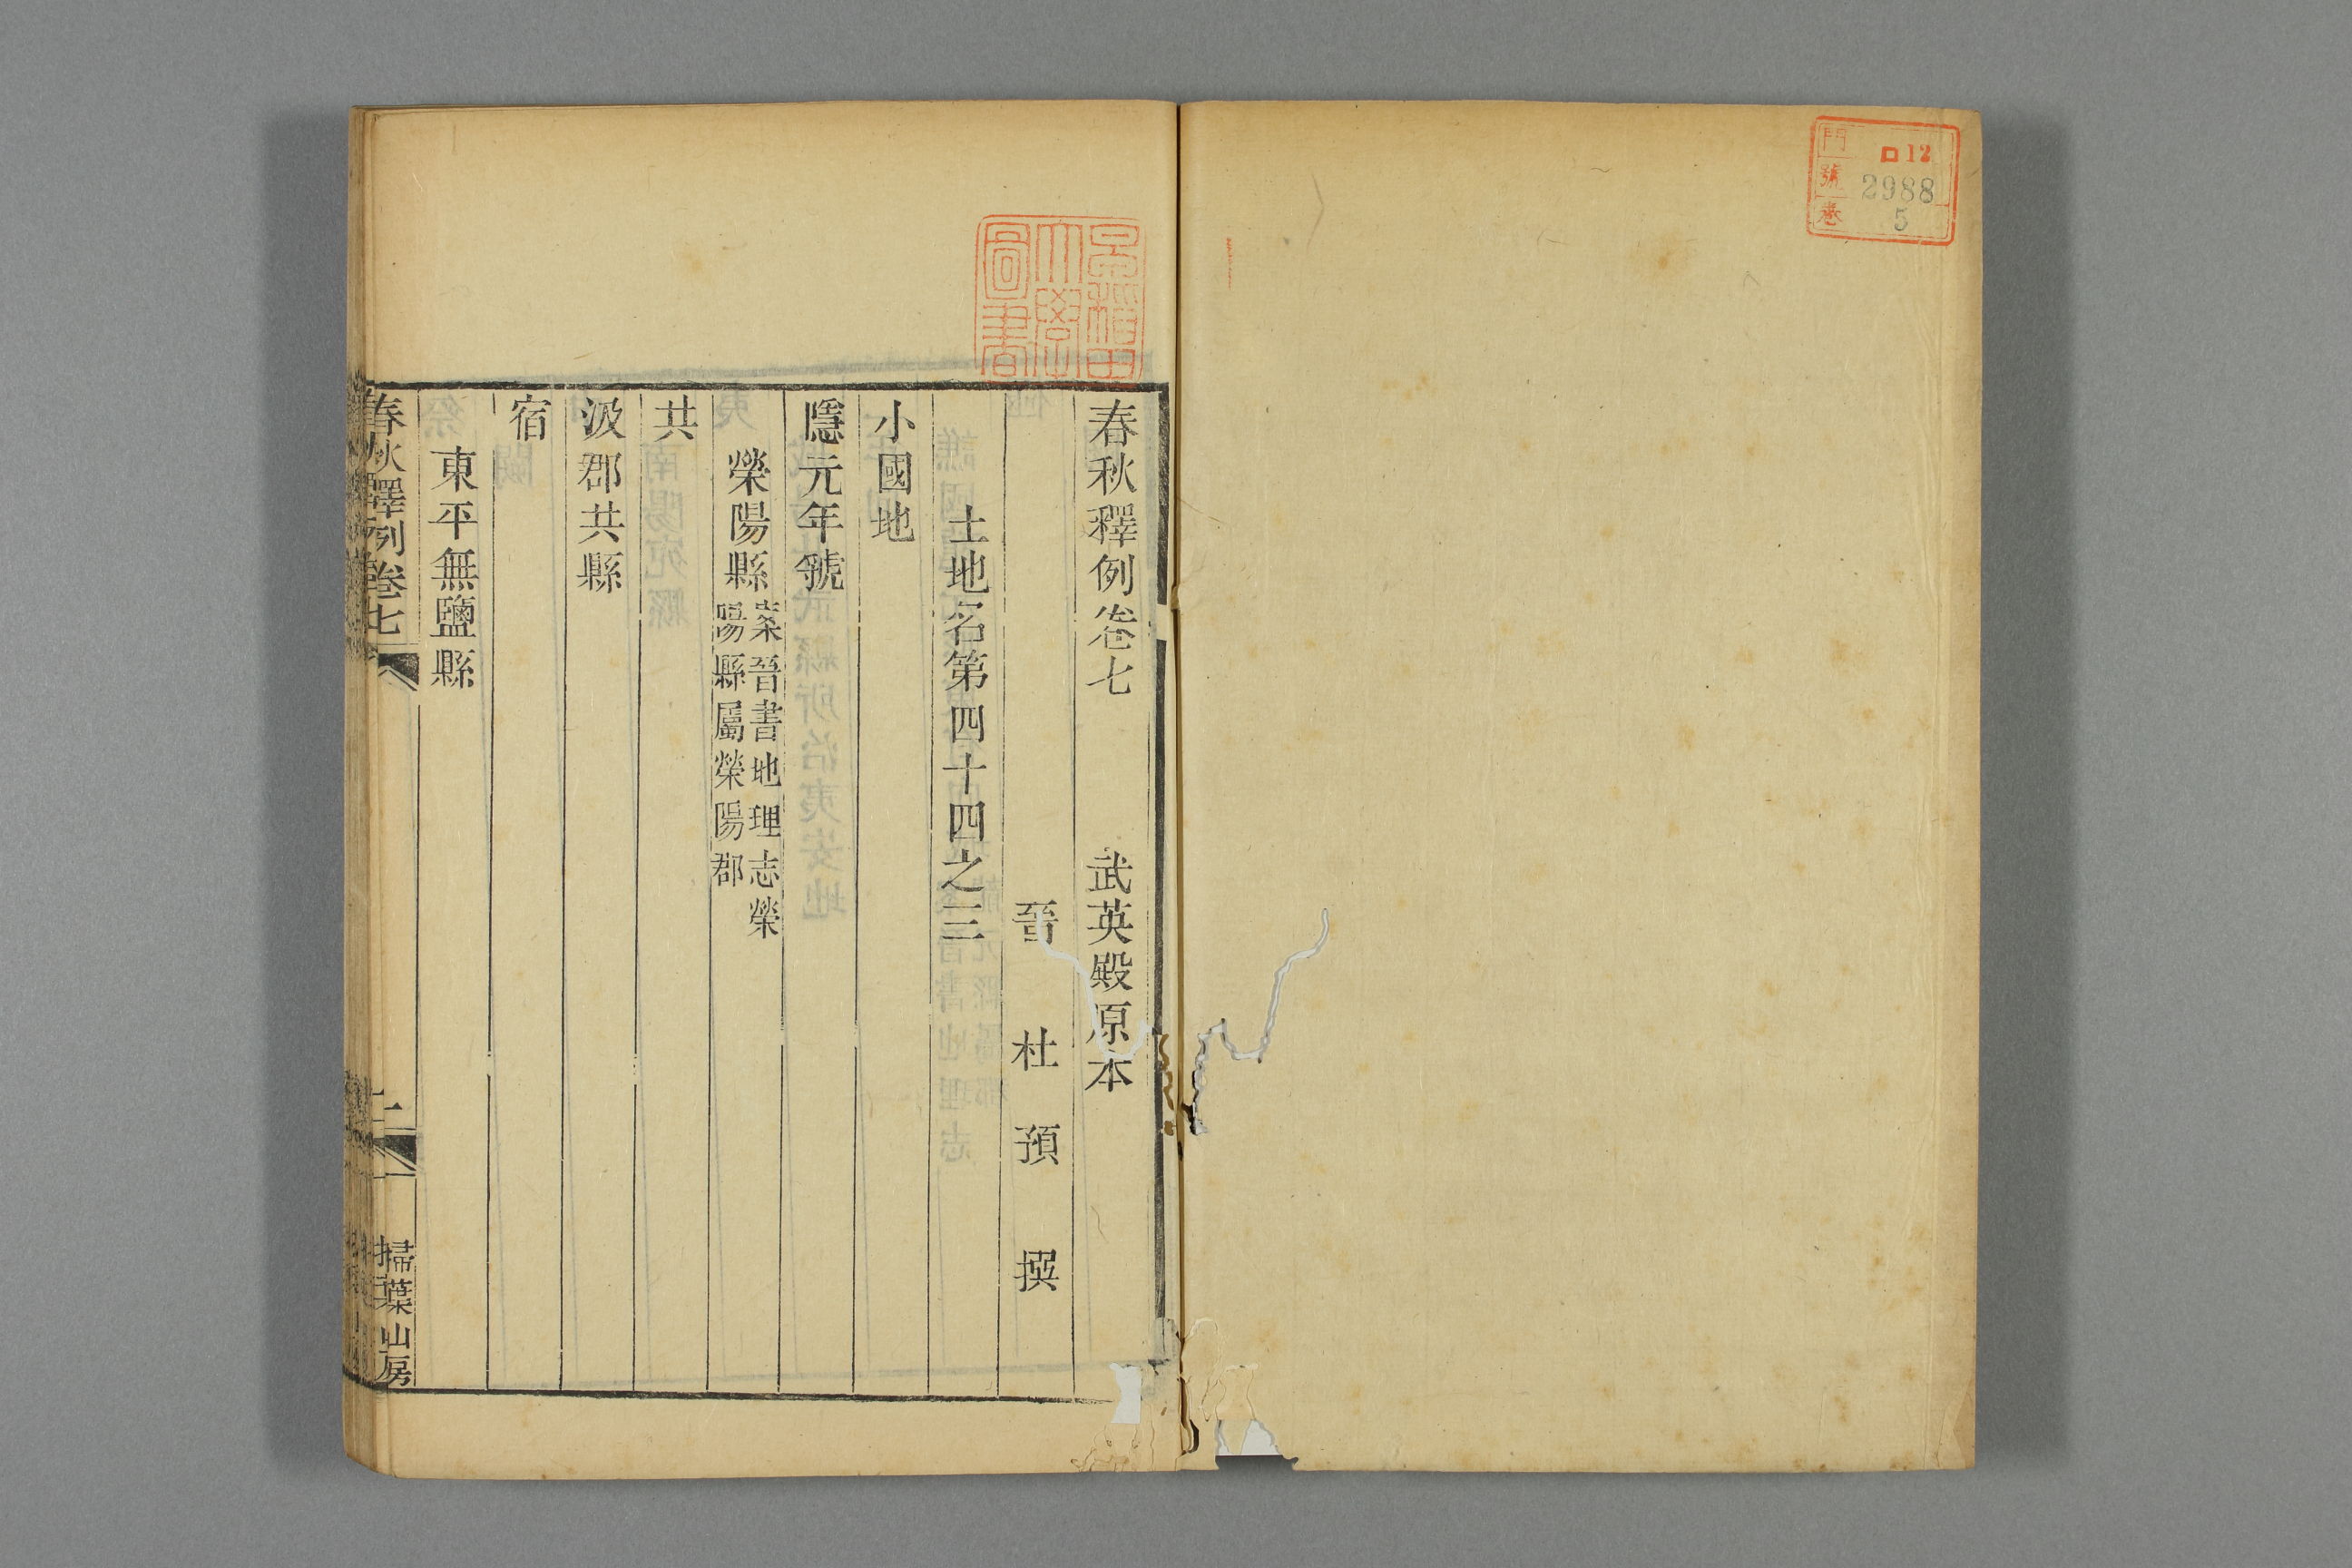 門 ロ12
號 2988
卷 5
早稻田
大學
圖書
春秋釋例卷七 武英殿原本
晉 杜預撰
土地名第四十四之三
小國地
隱元年虢
滎陽縣案晉書地理志滎
陽縣屬滎陽郡
共
汲郡共縣
宿
東平無鹽縣
春秋釋例卷七 一 掃葉山房